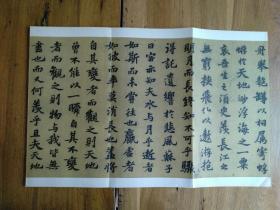 舟舉匏樽以相屬寄蜉
蝣於天地渺浮海之一粟
哀吾生之須臾羨長江之
無窮挾飛仙以遨遊抱
明月而長終知不可乎驟
得託遺響於悲風蘇子
曰客亦知夫水與月乎逝者
如斯而未嘗往也贏虛者
如彼而卒莫消長也蓋將
自其變者而觀之則天地
曾不能以一瞬自其不變
者而觀之則物與我皆無
盡也而又何羨乎且夫天地